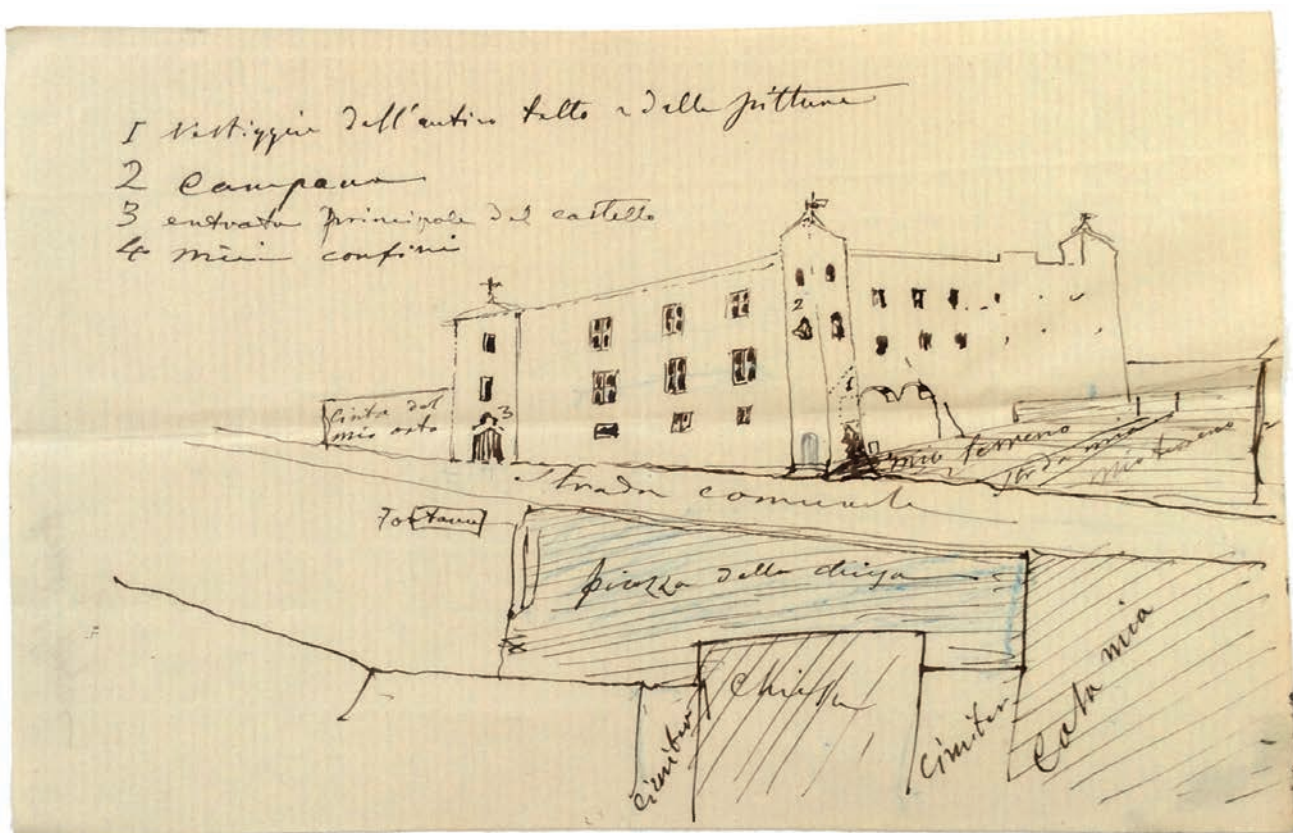 1 Vestiggia dell'antico tetto e delle pitture
2 Campana
3 entrata principale del castello
4 miei confini
2
3
1
Cinta del
mio orto
mio terreno
strada mia
mio terreno
Strada comunale
Fontana
piazza della chiesa
Chiesa
cimiter
cimiter
Casa mia